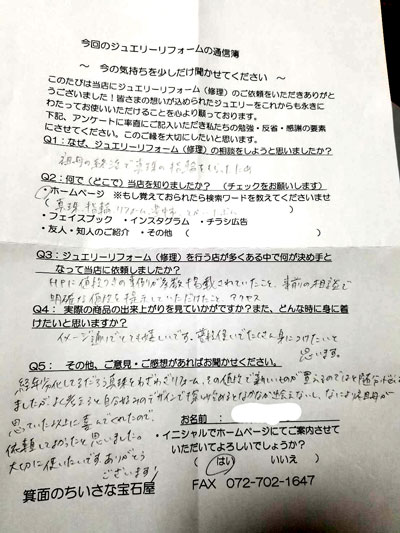 今回のジュエリーリフォームの通信簿
～ 今の気持ちを少しだけ聞かせてください ～
このたびは当店にジュエリーリフォーム（修理）のご依頼をいただきありがと
うございました！皆さまの想いが込められたジュエリーをこれからも永きに
わたってお使いいただけることを心より願っております。
下記、アンケートに率直にご記入いただき私たちの勉強・反省・感謝の要素
にさせてください。このご縁を大切にしたいと思います。
Q1：なぜ、ジュエリーリフォーム（修理）の相談をしようと思いましたか？
祖母の
真珠の指輪をもらったため
Q2：何で（どこで）当店を知りましたか？ （チェックをお願いします）
・ホームページ ※もし覚えておられたら検索ワードを教えてくださいませ
（ 真珠 指輪 リフォーム
）
・フェイスブック ・インスタグラム ・チラシ広告
・友人・知人のご紹介 ・その他（ ）
Q3：ジュエリーリフォーム（修理）を行う店が多くある中で何が決め手と
なって当店に依頼しましたか？
HPに値段つきの実例が多数掲載されていたこと、事前の相談で
明確な値段を提示していただけたこと、アクセス
Q4： 実際の商品の出来上がりを見ていかがですか？また、どんな時に身に着
けたいと思いますか？
イメージ通りでとても嬉しいです。普段使いでたくさん身につけたいと
思います。
Q5： その他、ご意見・ご感想があればお聞かせください。
経年劣化してるだろう真珠をわざわざリフォーム、その値段で新しいものが買えるのではと随分悩
ましたが、よく考えると自分好みのデザインで
なかなか
ないし、なにより祖母が
思っていた以上に喜んでくれたので、
依頼してよかったと思いました。
大切に使いたいです。ありがとう
ございます！
お名前：
・イニシャルでホームページにてご案内させて
いただいてよろしいでしょうか？
（ はい いいえ ）
箕面のちいさな宝石屋 FAX 072-702-1647